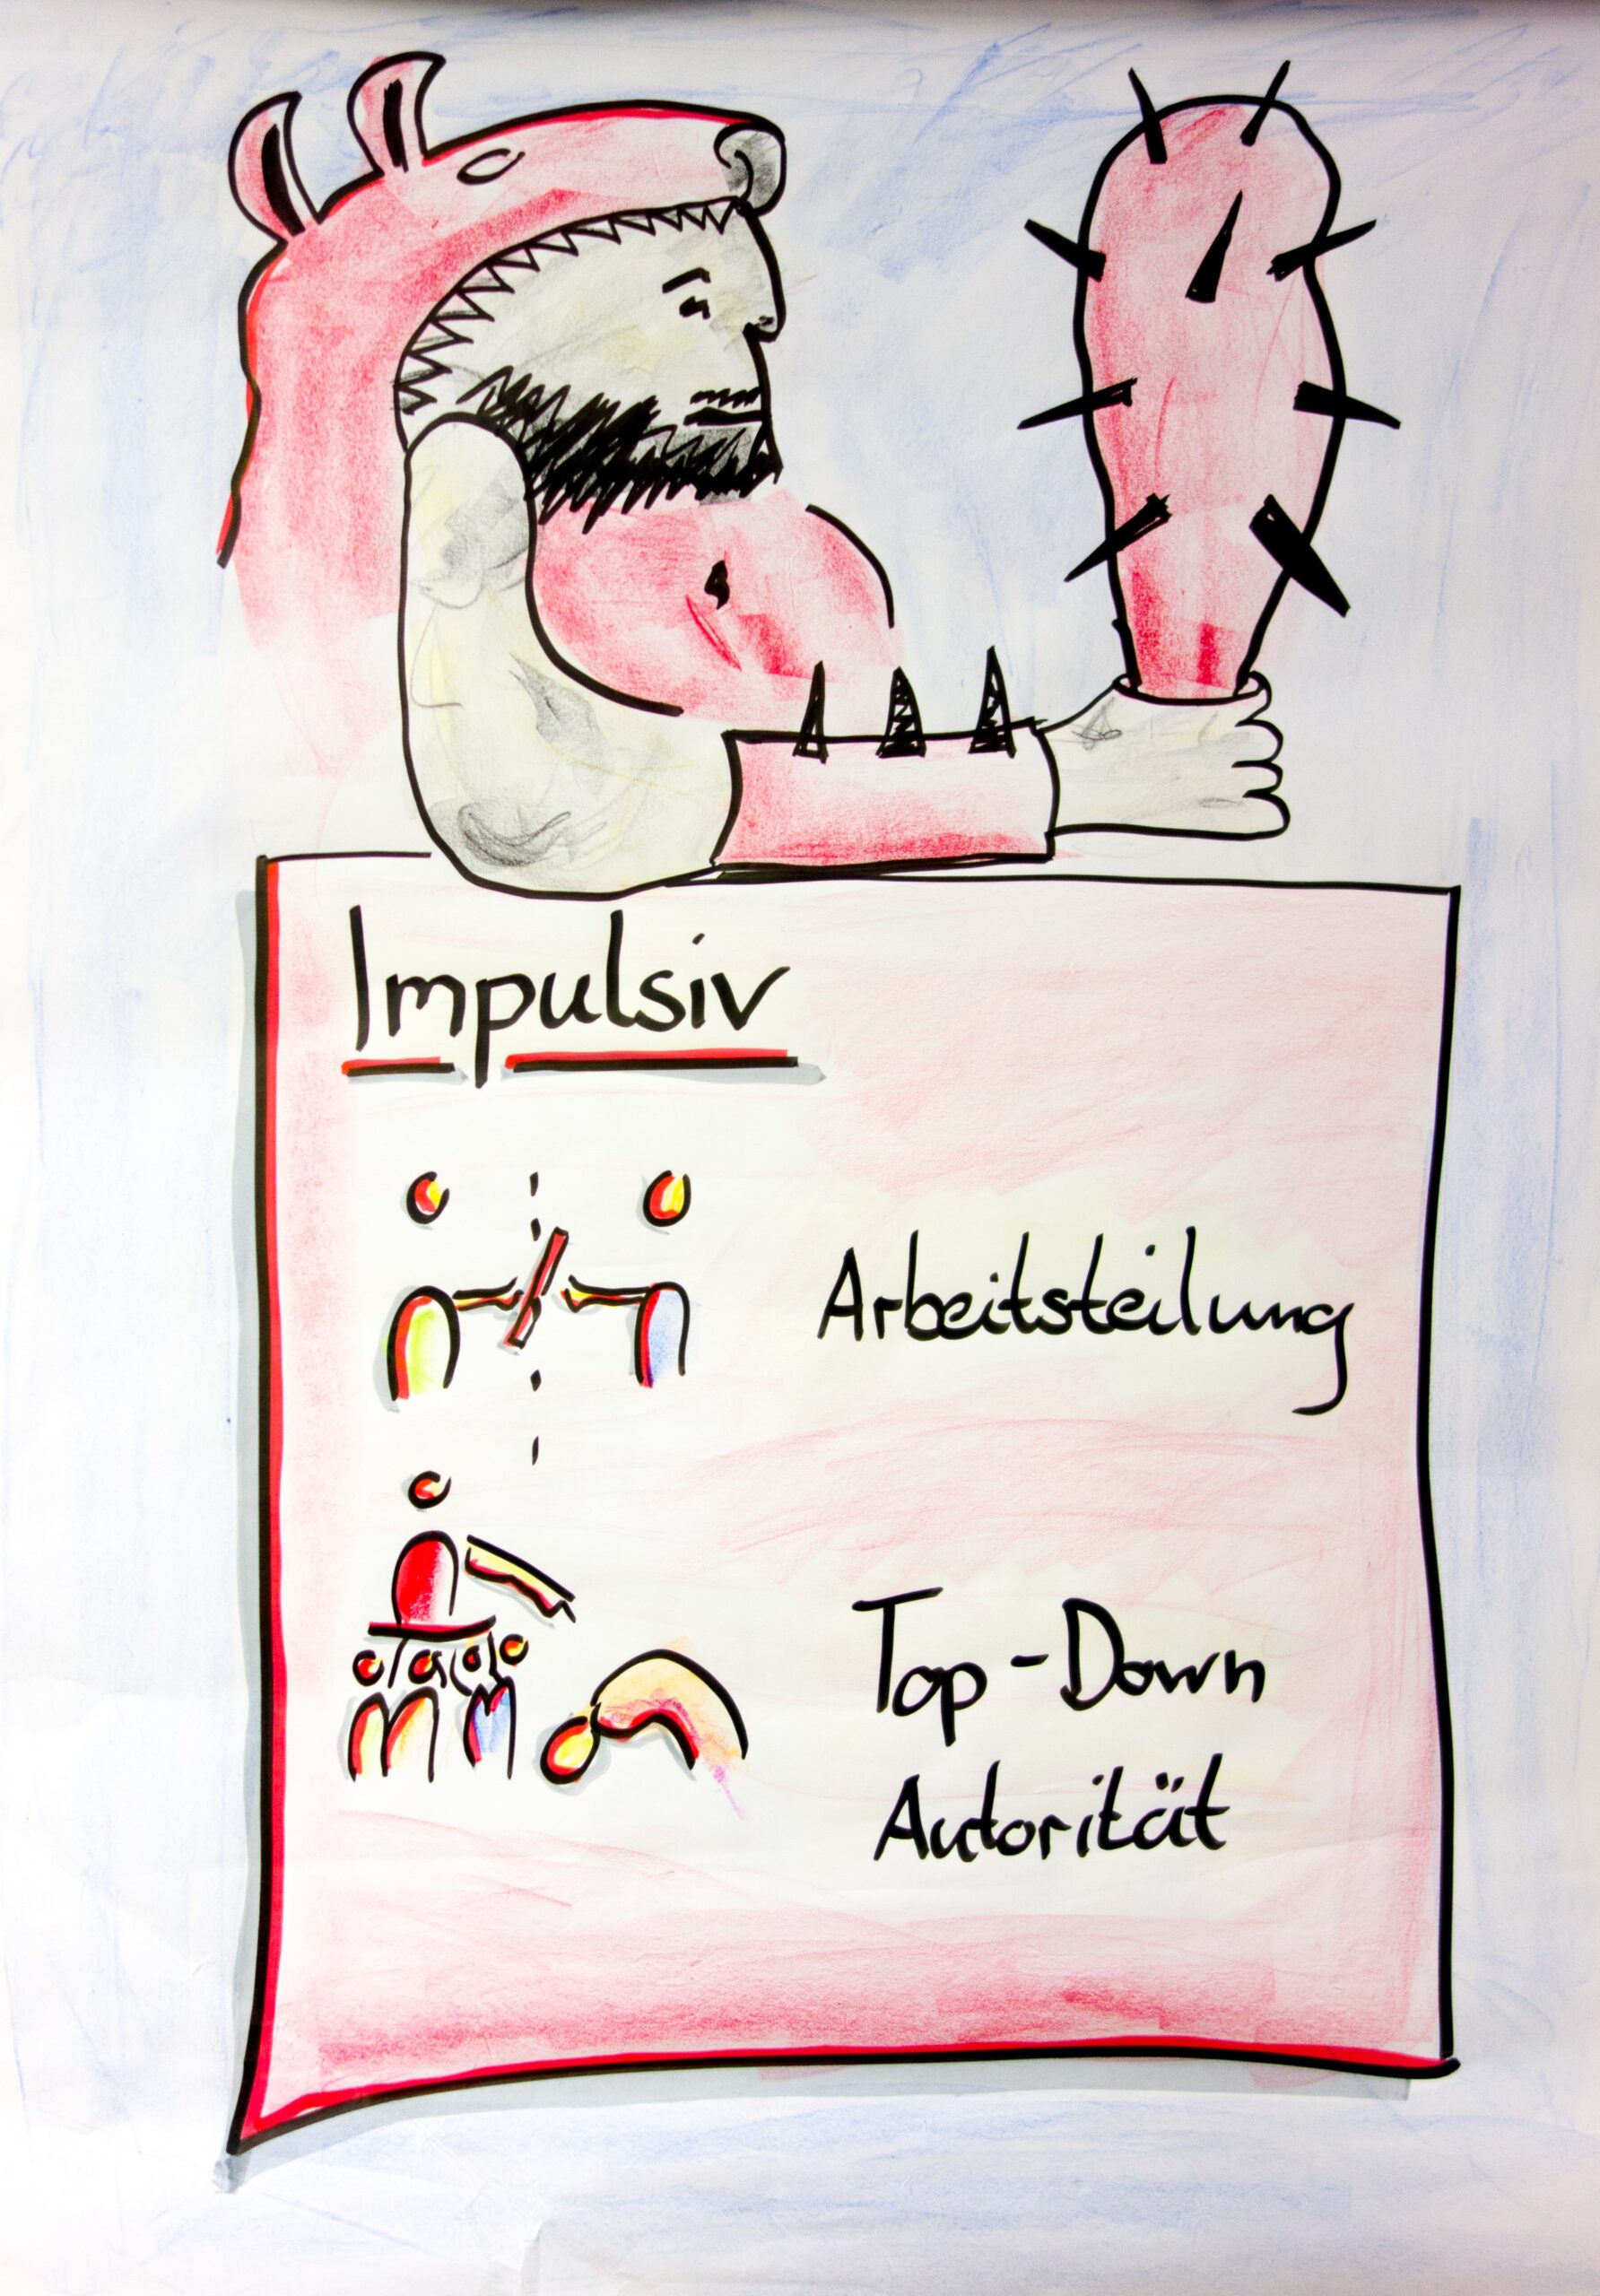 Impulsiv
Arbeitsteilung
Top-Down
Autorität